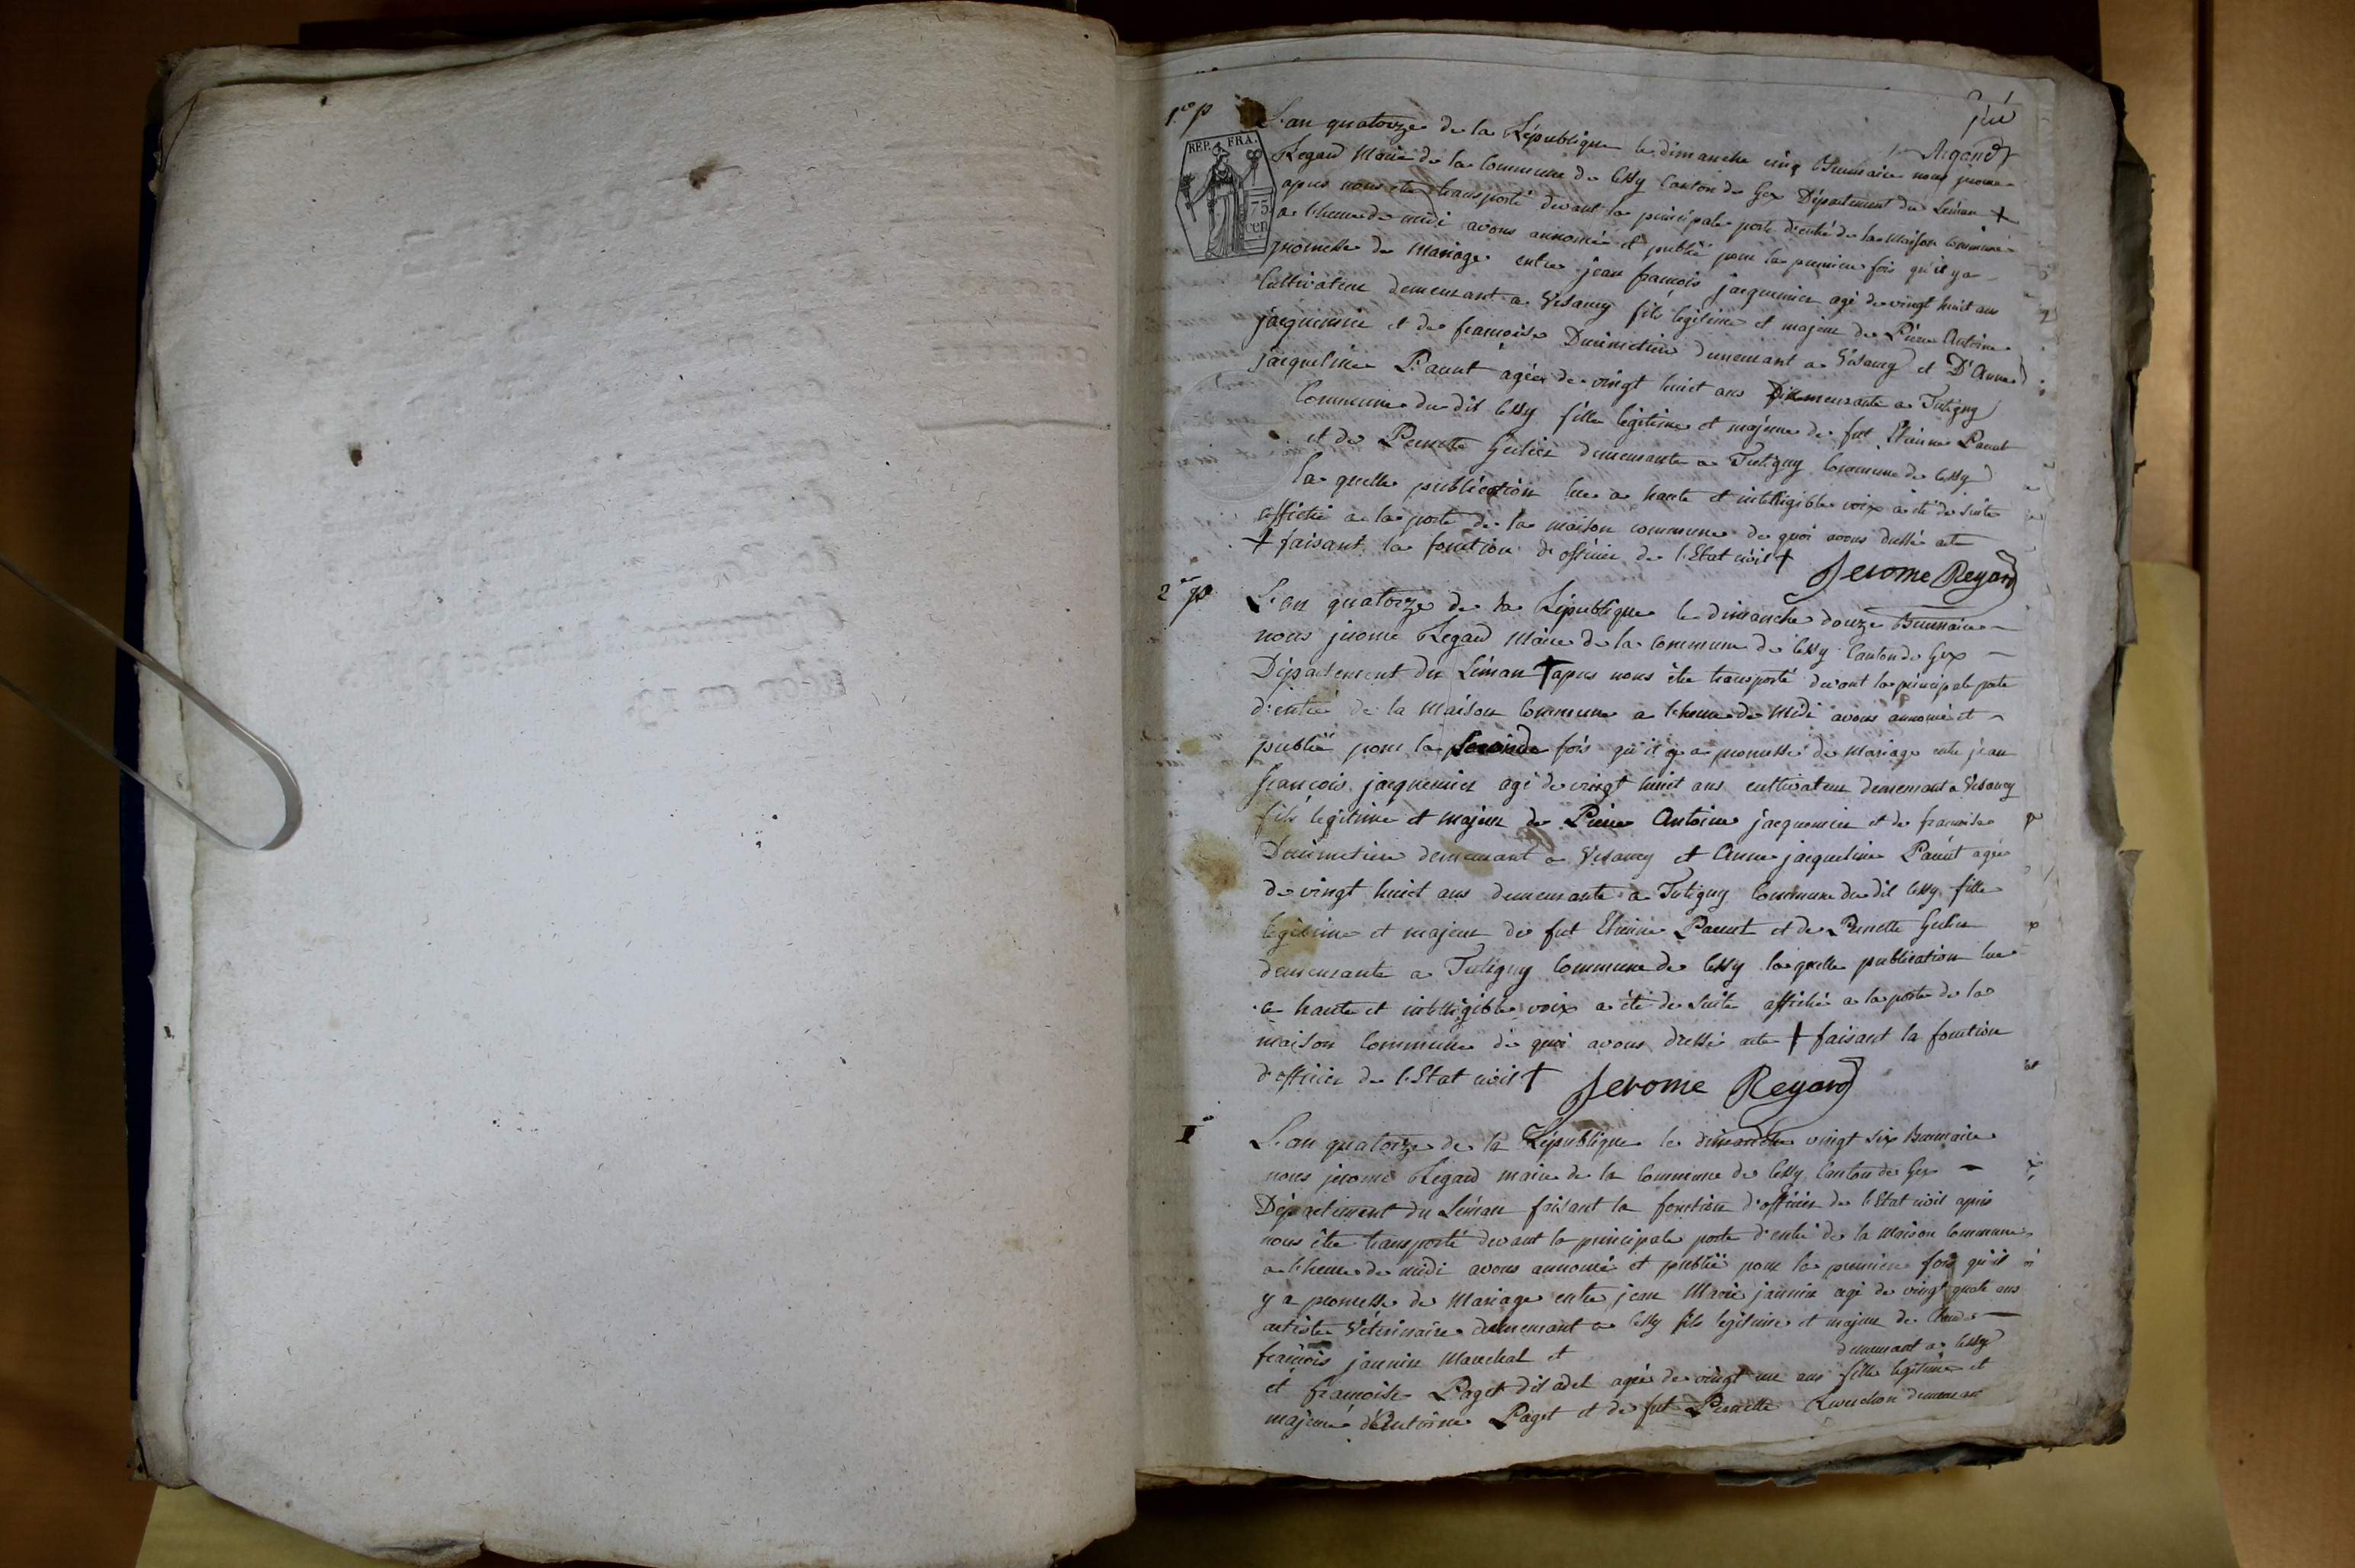 1.re p
REP. FRA.
75
cen
L'an quatorze de la République le dimanche cinq Brumaire nous jerome
Regard Maire de la Commune de Cessy Canton de Gex Département du Léman +
apres nous etre transporté devant la principale porte d'entré de la Maison Commune
a l'heure de midi avons annoncé et publié pour la premiere fois qu'il y a
promesse de Mariage entre jean francois jacquemier agé de vingt huit ans
Cultivateur demeurant a Vesancy fils legitime et majeur de Pierre Antoine
jacquemier et de francoise demeurant a Vesancy et D'Anne
jacqueline Parent agée de vingt huit ans demeurante a Tutigny
Commune du dit Cessy fille legitime et majeure de fut Etienne Parent
et de Pernette Gulier demeurante a Tutigny Commune de Cessy
la quelle publication lue a haute et intelligible voix a été de suite
affiché a la porte de la maison commune de quoi avons dressé acte
+ faisant la fonction d'officier de l'Etat civil +
Jerome Regard
2.e p
L'an quatorze de la République le dimanche douze Brumaire
nous jerome Regard Maire de la commune de Cessy Canton de Gex
Département du Léman + apres nous etre transporté devant la principale porte
d'entré de la Maison Commune a l'heure de Midi avons annoncé et
publié pour la seconde fois qu'il y a promesse de Mariage entre jean
francois jacquemier agé de vingt huit ans cultivateur demeurant a Vesancy
fils legitime et majeur de Pierre Antoine jacquemier et de francoise
demeurant a Vesancy et Anne jacqueline Parent agée
de vingt huit ans demeurante a Tutigny Commune du dit Cessy fille
legitime et majeur de fut Etienne Parent et de Pernette Gulier
demeurante a Tutigny Commune de Cessy laquelle publication lue
a haute et intelligible voix a été de suite affiché a la porte de la
maison Commune de quoi avons dressé acte + faisant la fonction
d'officier de l'Etat civil +
Jerome Regard
1.e
L'an quatorze de la République le dimanche vingt six Brumaire
nous jerome Regard maire de la Commune de Cessy Canton de Gex
Département du Léman faisant la fonction d'officier de l'Etat civil apres
nous etre transporté devant la principale porte d'entré de la Maison Commune
a l'heure de midi avons annoncé et publié pour la premiere fois qu'il
y a promesse de Mariage entre jean Marie jannin agé de vingt quatre ans
artiste Véterinaire demeurant a Cessy fils legitime et majeur de Claude
francois jannin Marechal et demeurant a Cessy
et francoise Paget dit adet agée de vingt un ans fille legitime et
majeure d'Antoine Paget et de fut Pernette demeurant